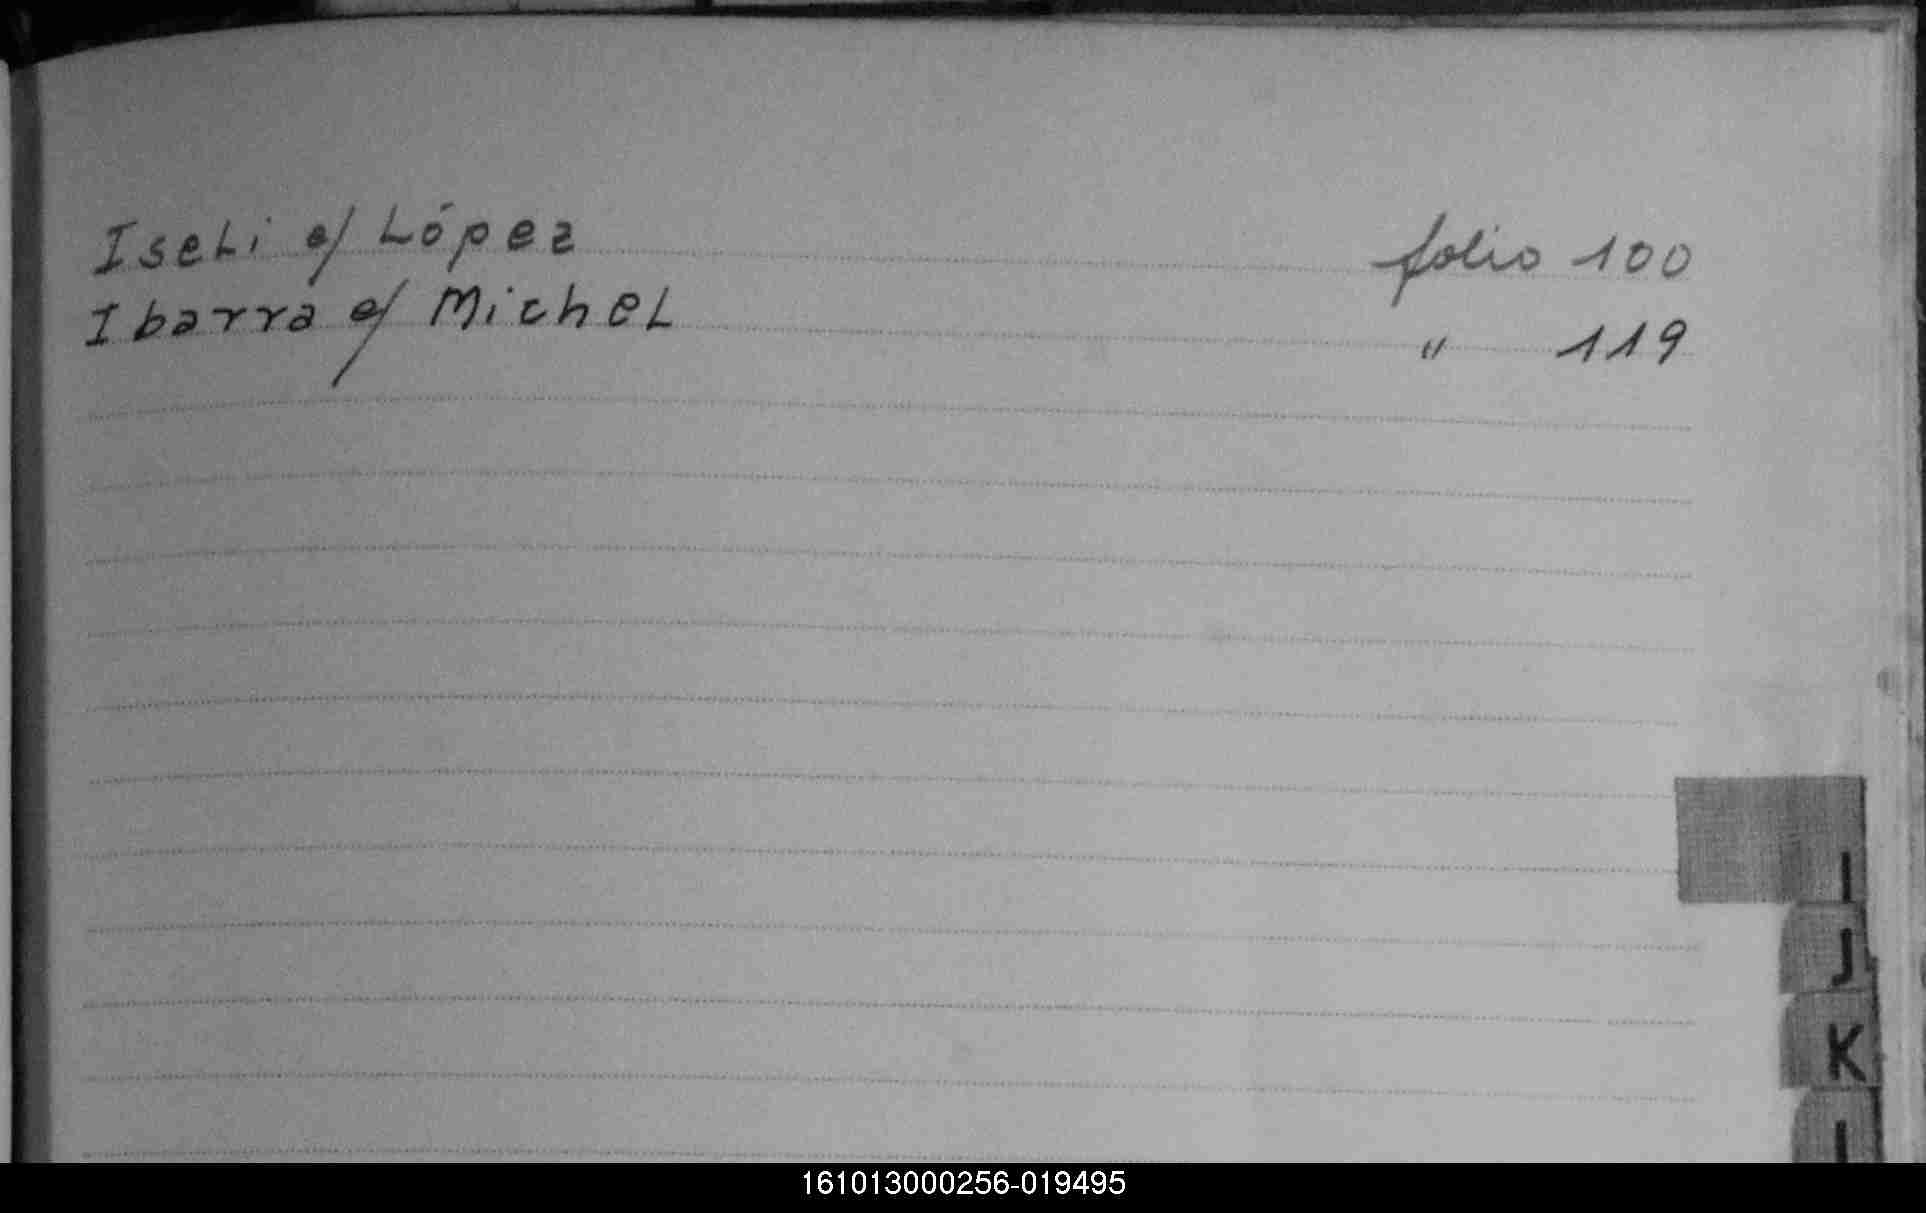 Iseli e/ López folio 100
Ibarra e/ Michel " 119
I
J
K
161013000256-019495